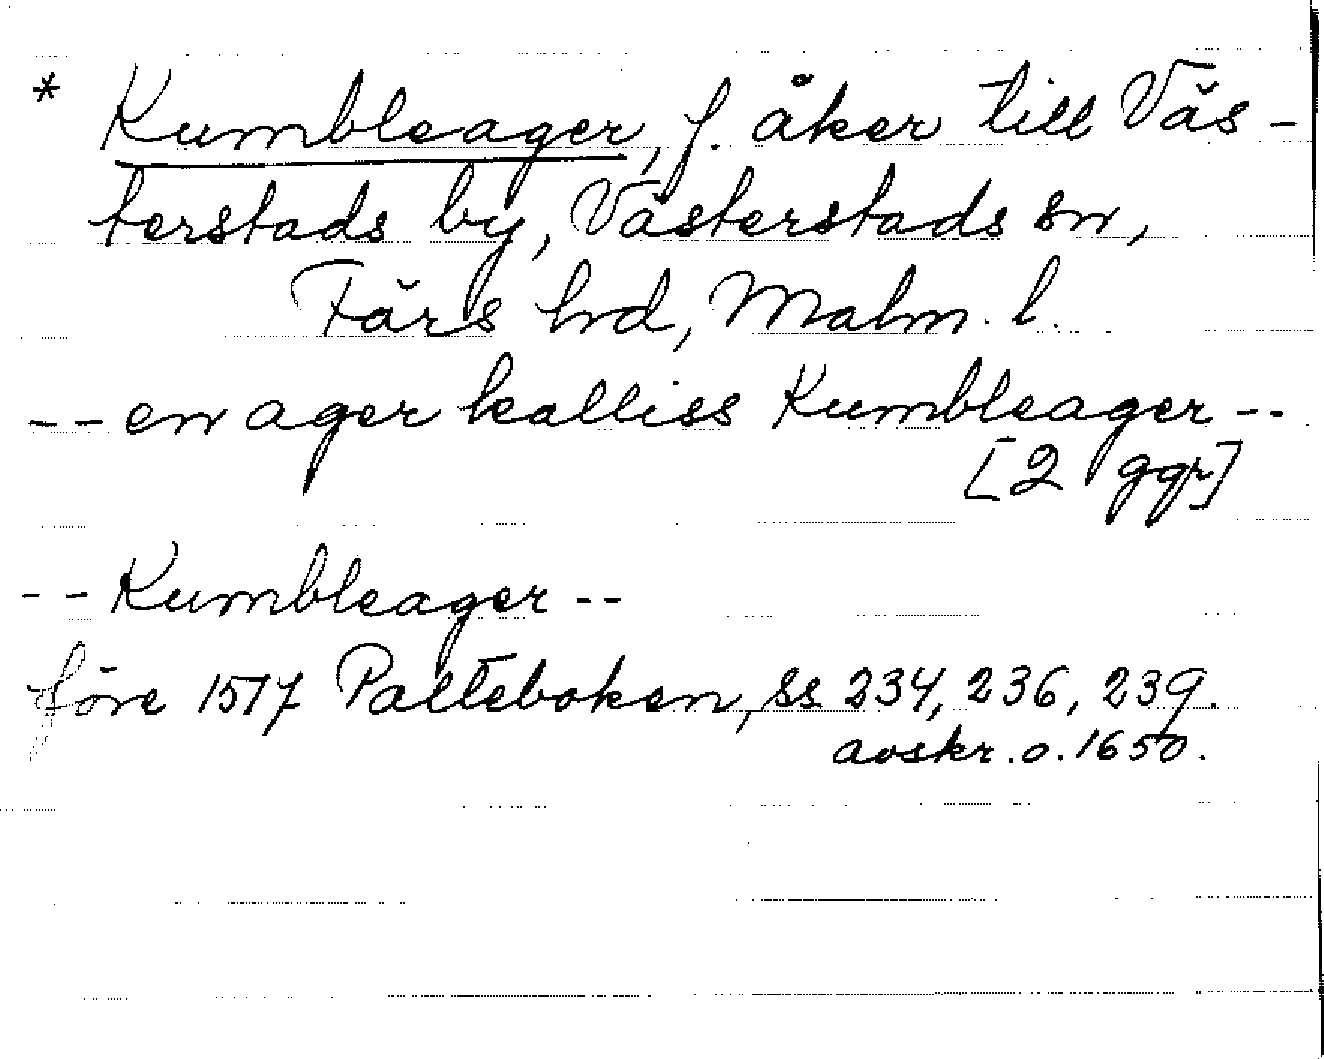 * Kumbleager, f. åker till Väs-
terstads by, Västerstads sn,
Färs hd, Malm. l.
-- en ager kalliss Kumbleager --
[2 ggr]
-- Kumbleager --
före 1517 Palteboken, ss 234, 236, 239.
avskr. o. 1650.